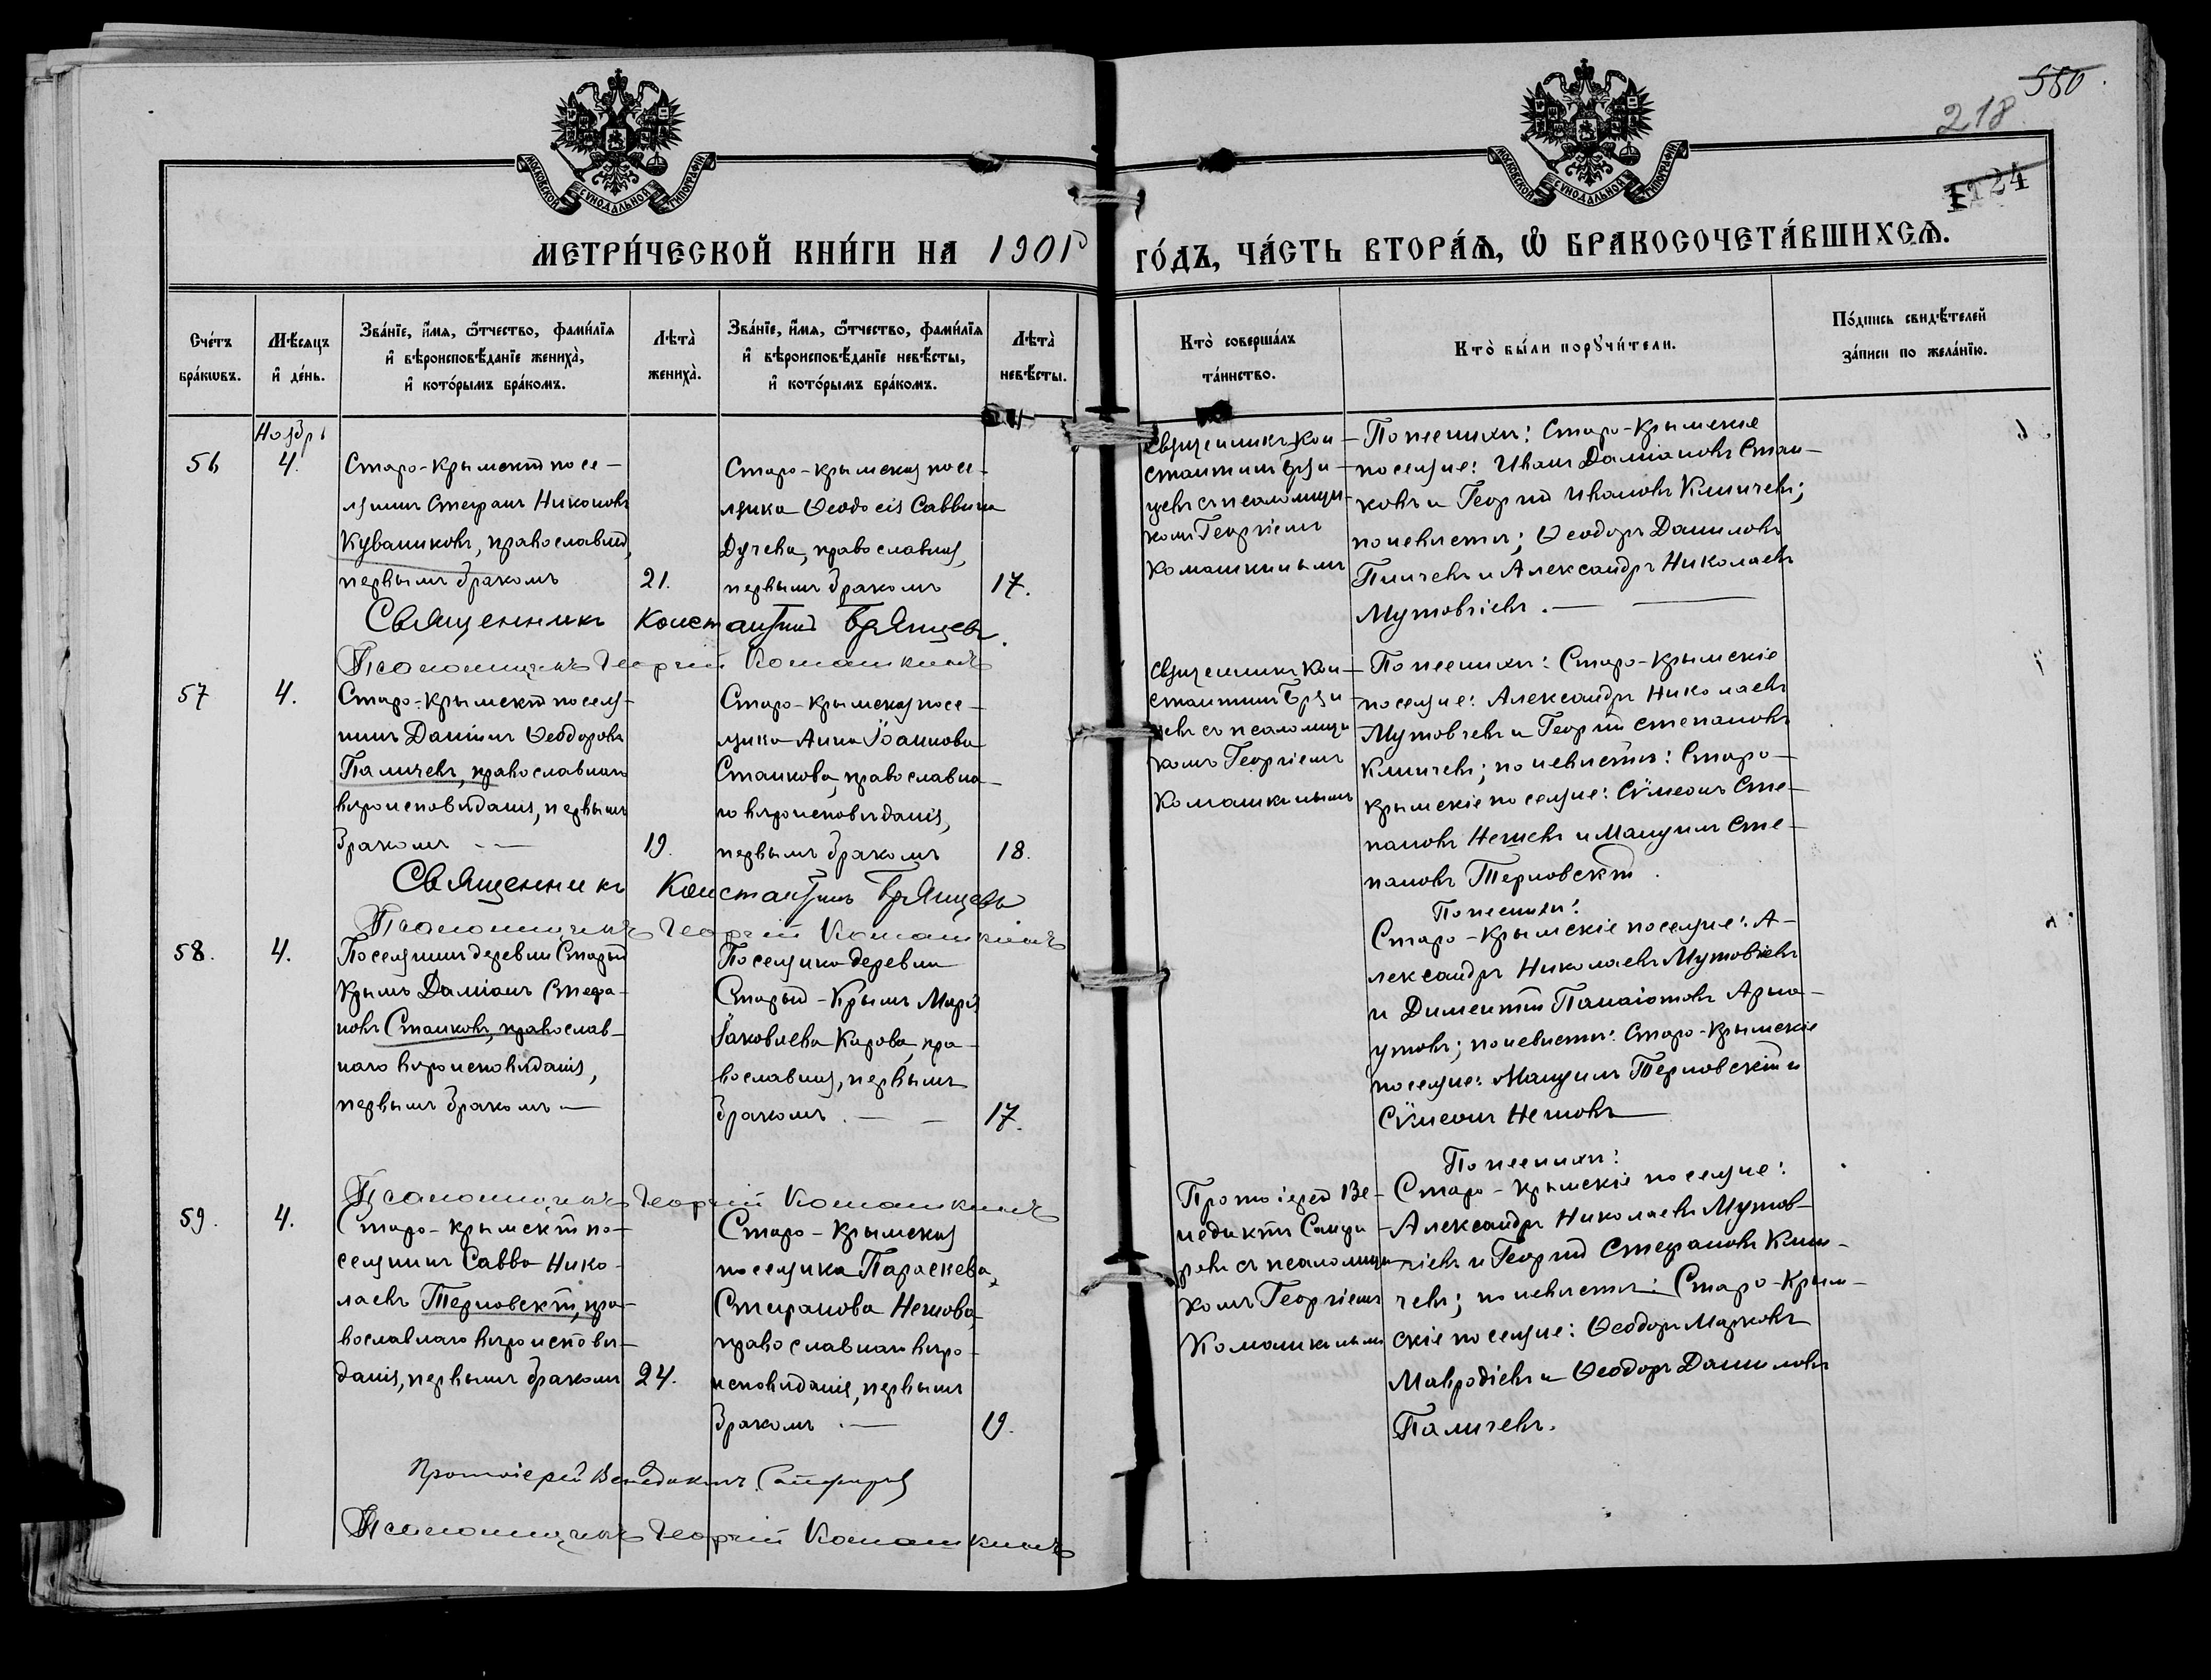 550
218
1124
МОСКОВСКОЙ СѴНОДАЛЬНОЙ ТИПОГРАФІИ
МОСКОВСКОЙ СѴНОДАЛЬНОЙ ТИПОГРАФІИ
МЕТРИ́ЧЕСКОЙ КНИ́ГИ НА 1901 ГО́ДЪ, ЧА́СТЬ ВТОРА́Ѧ, Ѡ҆ БРАКОСОЧЕТА́ВШИХСѦ.
Сче́тъ бра́кѡвъ.
Мѣ́сяцъ и҆ де́нь.
Зва́нїе, и҆́мя, ѻ҆́тчество, фами́лїя
и҆ вѣроисповѣ́данїе жениха̀,
и҆ кото́рымъ бра́комъ.
Лѣта̀ жениха̀.
Зва́нїе, и҆́мя, ѻ҆́тчество, фами́лїя
и҆ вѣроисповѣ́данїе невѣ́сты,
и҆ кото́рымъ бра́комъ.
Лѣта̀ невѣ́сты.
Кто̀ соверша́лъ
та́инство.
Кто̀ бы́ли порꙋчи́тели.
По́дпись свидѣ́телей
за́писи по жела́нїю.
Ноября
56
4.
Старо-Крымскій посе-
лянинъ Стефанъ Никоновъ
Куваниковъ, православный,
первымъ бракомъ
21.
Старо-Крымская посе-
лянка Ѳеодосія Саввина
Дучева, православная,
первымъ бракомъ
17.
Священникъ Кон-
стантинъ Брян-
цевъ съ псаломщи-
комъ Георгіемъ
Комашкинымъ
По женихѣ: Старо-Крымскіе
поселяне: Иванъ Даміановъ Стан-
ковъ и Георгій Ивановъ Клинчевъ;
по невѣстѣ; Ѳеодоръ Даниловъ
Паличевъ и Александръ Николаевъ
Мутовчіевъ.
Священникъ Константинъ Брянцевъ.
Псаломщикъ Георгій Комашкинъ
57
4.
Старо-Крымскій поселя-
нинъ Даніилъ Ѳеодоровъ
Паличевъ, православнаго
вѣроисповѣданія, первымъ
бракомъ
19.
Старо-Крымская посе-
лянка Анна Іоаннова
Станкова, православна-
го вѣроисповѣданія,
первымъ бракомъ
18.
Священникъ Кон-
стантинъ Брян-
цевъ съ псаломщи-
комъ Георгіемъ
Комашкинымъ
По женихѣ: Старо-Крымскіе
поселяне: Александръ Николаевъ
Мутовчевъ и Георгій Степановъ
Клинчевъ; по невѣстѣ: Старо-
Крымскіе поселяне: Сѵмеонъ Сте-
пановъ Нешевъ и Мануилъ Сте-
пановъ Терновскій.
Священникъ Константинъ Брянцевъ
Псаломщикъ Георгій Комашкинъ
58.
4.
Поселянинъ деревни Старый
Крымъ Даміанъ Стефа-
новъ Станковъ, православ-
наго вѣроисповѣданія,
первымъ бракомъ
Поселянка деревни
Старый-Крымъ Марія
Іаковлева Карова, пра-
вославная, первымъ
бракомъ.
17.
По женихѣ:
Старо-Крымскіе поселяне: А-
лександръ Николаевъ Мутовчіевъ
и Димитрій Панаіотовъ Арна-
утовъ; по невѣстѣ: Старо-Крымскіе
поселяне: Мануилъ Терновскій и
Сѵмеонъ Нешовъ
Псаломщикъ Георгій Комашкинъ
59.
4.
Старо-Крымскій по-
селянинъ Савва Нико-
лаевъ Терновскій, пра-
вославнаго вѣроисповѣ-
данія, первымъ бракомъ
24.
Старо-Крымская
поселянка Параскева
Стефанова Нешова,
православнаго вѣро-
исповѣданія, первымъ
бракомъ.
19.
Протоіерей Ве-
недиктъ Сапфи-
ровъ съ псаломщи-
комъ Георгіемъ
Комашкинымъ
По женихѣ:
Старо-Крымскіе поселяне:
Александръ Николаевъ Мутов-
чіевъ и Георгій Стефановъ Клин-
чевъ; по невѣстѣ: Старо-Крым-
скіе поселяне: Ѳеодоръ Марковъ
Мавродіевъ и Ѳеодоръ Даниловъ
Паличевъ.
Протоіерей Венедиктъ Сапфировъ
Псаломщикъ Георгій Комашкинъ